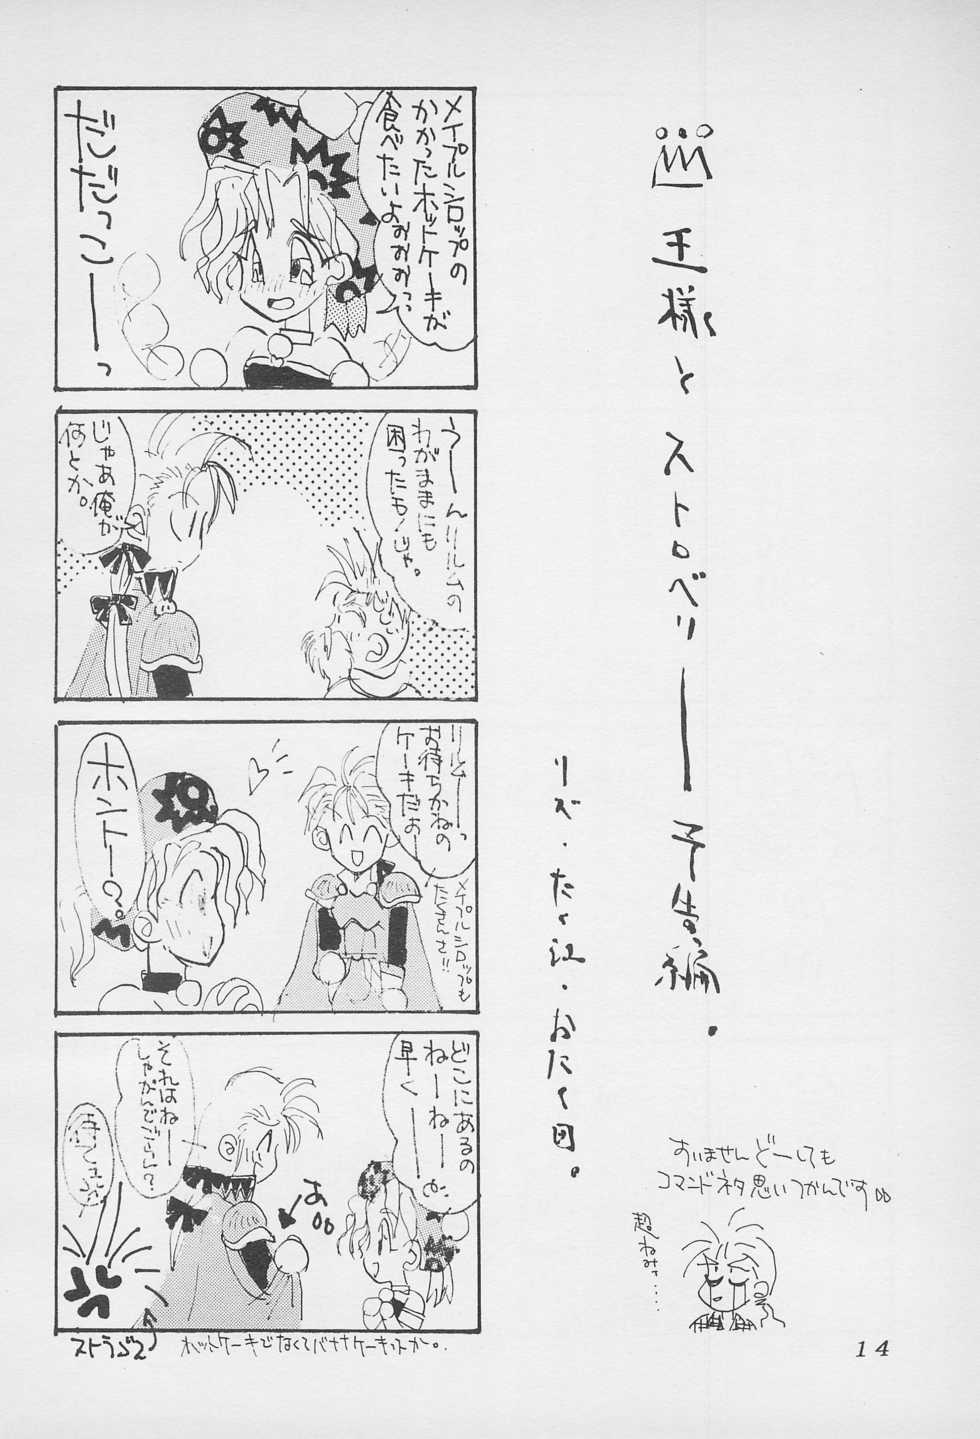 王様とストロベリー――予告編。
リズ・たく江・おたく田。
メイプルシロップの
かかったホットケーキが
食べたいよぉぉぉっっ
だだっこ――っ
うーんリルムの
わがままにも
困ったもんじゃ。
じゃあ俺が
何とか。
リルム――っ
お待ちかねの
ケーキだぉー
メイプルシロップも
たくさんさ!!
ホントー?
どこにあるの
ねーねー
早くー
あ
それはね――
しゃがんでごらん?
ストラゴス
ホットケーキでなくてバナナケーキットか。
すいませんどーしても
コマンドネタ思いつかんです
超ねみぃ……
14